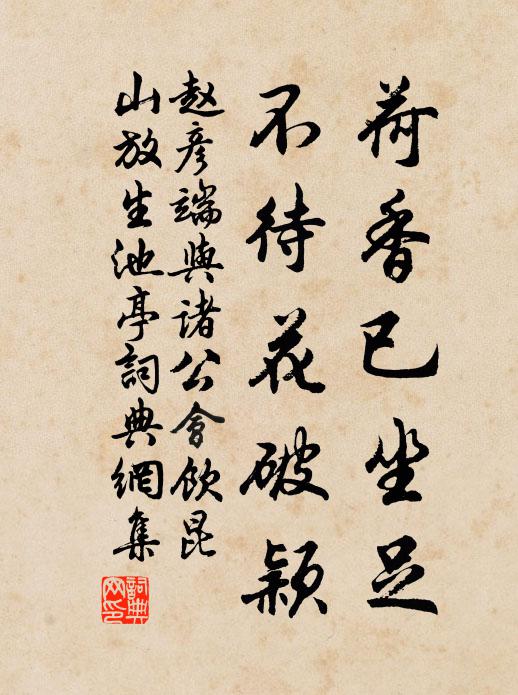 荷香已坐足
不待花破颖
赵彦端與诸公會飲昆
山放生池亭詞典網集
詞典
网印